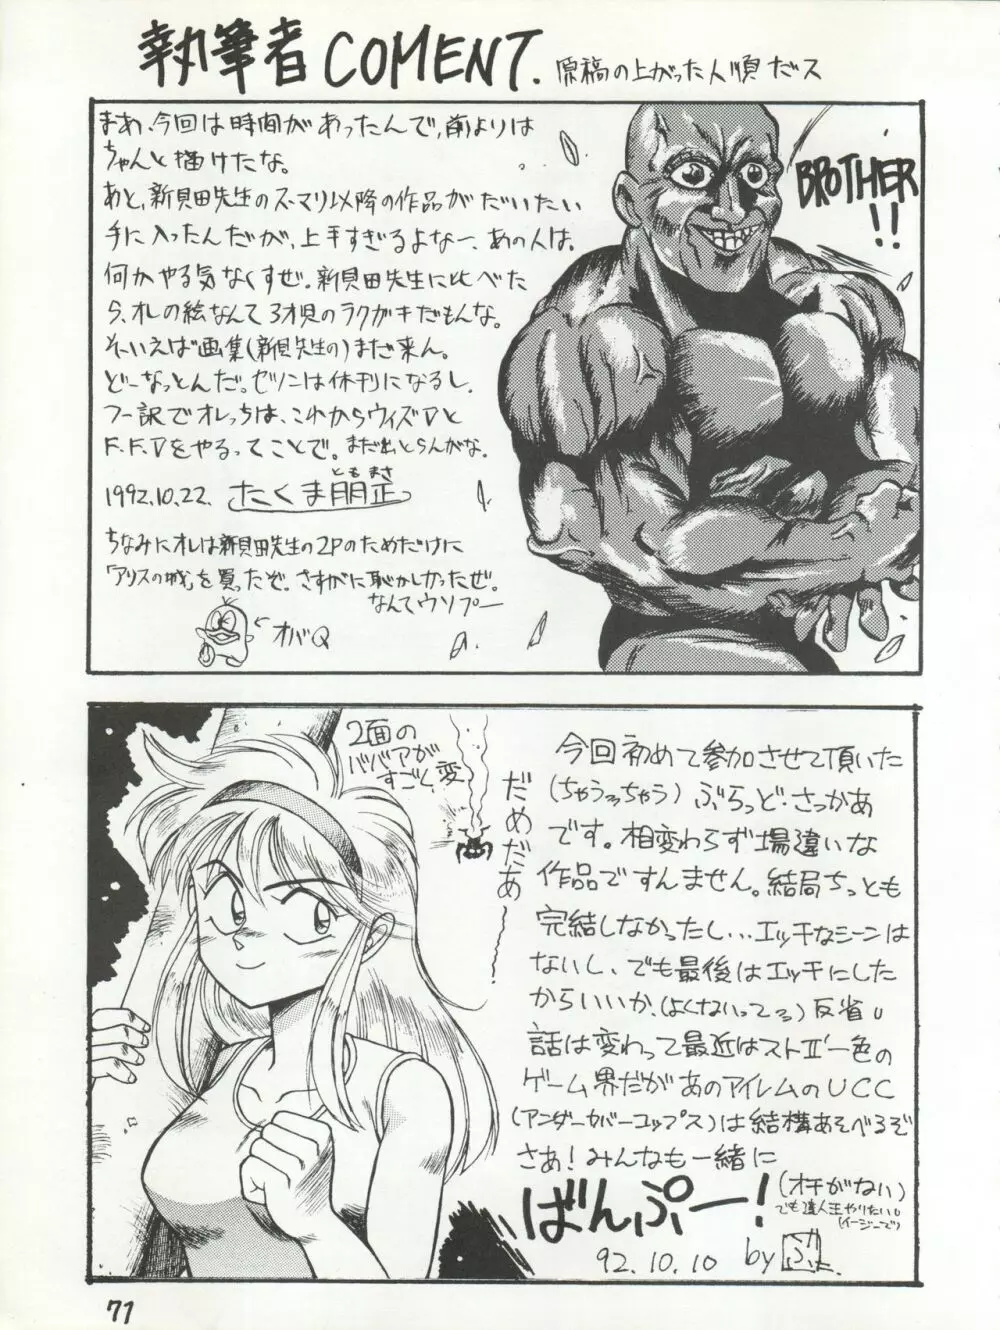 執筆者 COMENT. 原稿の上がった人順だス
まあ、今回は時間があったんで、前よりは
ちゃんと描けたな。
あと、新貝田先生のス・マリ以降の作品がだいたい
手に入ったんだが、上手すぎるよなー、あの人は。
何かやる気なくすぜ。新貝田先生に比べた
ら、オレの絵なんて3才児のラクガキだもんな。
そーいえば画集(新貝先生の)まだ来ん。
どーなっとんだ。ゼツノンは休刊になるし、
つー訳でオレっちは、これからウィズVと
F.F.Vをやるってことで。まだ出とらんがな。
ともまさ
1992.10.22. たくま朋正
ちなみにオレは新貝田先生の2Pのためだけに
「アリスの城」を買ったぞ。さすがに恥かしかったぜ。
なんてウソプー
←オバQ
BROTHER
!!
2面の
ババアが
すごく変
だめだぁ〜
今回初めて参加させて頂いた
(ちゃうちゃう) ぶらっど・さっかあ
です。相変わらず場違いな
作品ですんません。結局ちっとも
完結しなかったし...エッチなシーンは
ないし、でも最後はエッチにした
からいいか、(よくないってろ)反省。
話は変わって最近はストⅡ'一色の
ゲーム界だがあのアイレムのUCC
(アンダーカバーコップス)は結構あそべるぞ
さあ!みんなも一緒に
ばんぷー!
(オチがない)
でも達人王やりたい。
(イージーで)
92.10.10 by
71